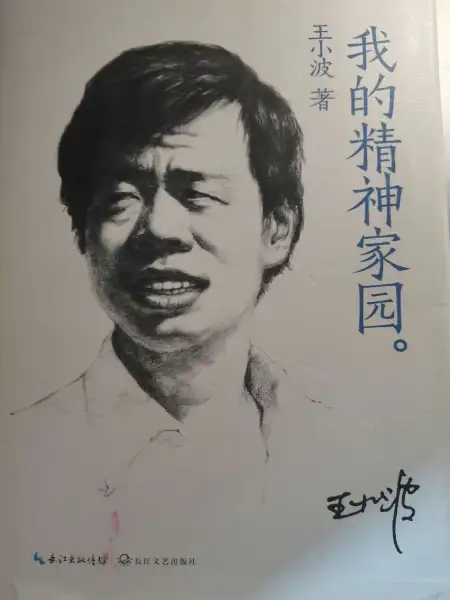 我的精神家园。
王小波 著
王小波
长江出版传媒 长江文艺出版社